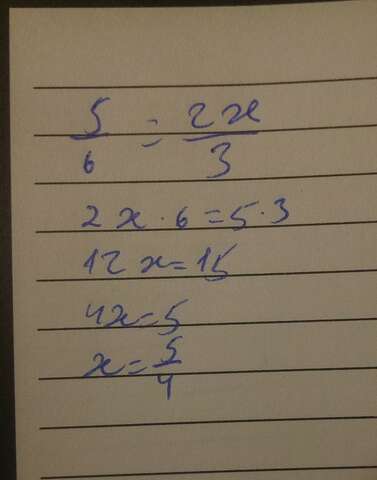 5/6 = 2x/3
2x · 6 = 5 · 3
12x = 15
4x = 5
x = 5/4